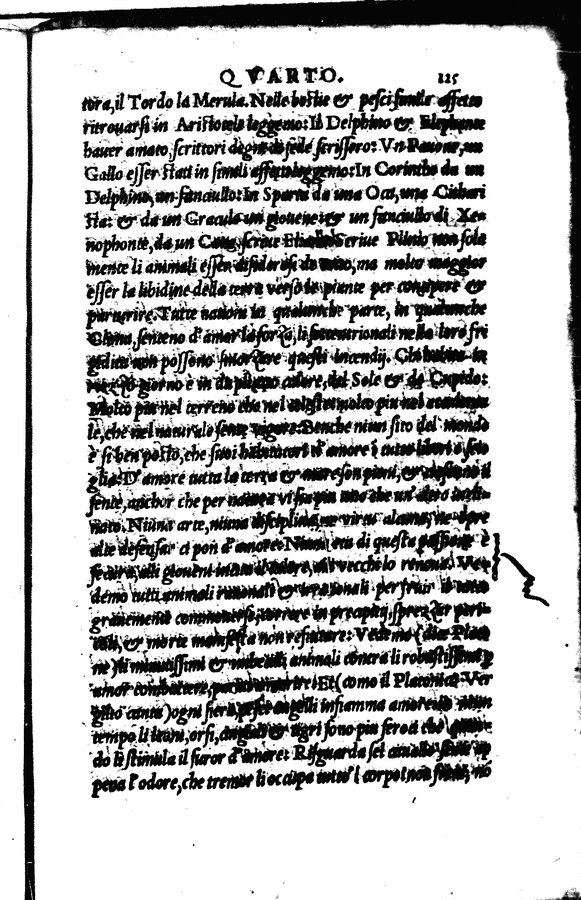 QVARTO. 225
tora, il Tordo la Merula. Nelle bestie & pesci simile affetto
ritrouarsi in Aristotele leggemo: Il Delphino & Elephante
hauer amato, scrittori degni di fede scrissero: Vn Pauone, un
Gallo esser stati in simili affetti leggemo: In Corintho da un
Delphino, un fanciullo: In Sparta da una Oca, una Cithari
sta: & da un Graculo un giouene: & un fanciullo di Xe-
nophonte, da un Cane, scriue Eliano. Scriue Plinio non sola
mente li animali esser desiderosi de coito, ma molto maggior
esser la libidine della terra verso le piante per concipere &
parturire. Tutte nationi in qualunche parte, in qualunche
Clima, senteno d'amor la forza, li settentrionali nella loro fri
gidita non possono smorzare questi incendij. Chi habita in
giorno e in duplicato calore, del Sole & de Cupido:
Molto piu nel terreno che nel celeste: molto piu nel
le, che nel naturale sente vigore. Benche niun sito del mondo
è si ben posto, che suoi habitatori d'amore i tutto liberi o scio
glia: D'amore tutta la terra & mare son pieni, & ciascuno il
sente, anchor che per natura vi sia piu uno che un'altro incli-
nato. Niuna arte, niuna disciplina, ne virtu alcuna, ne opre
alte defensar ci pon d'amore: Niuna eta di questa passione è
secura, alli gioueni incita il calore, alli vecchi lo renoua. Ve-
demo tutti animali rationali & irrationali per fruir
grauemente commouersi, correre in precipitij, sprezzar peri-
coli, & morte manifesta non refiutare: Vedemo (dice Plato
ne) li minutissimi & imbecilli animali contra li robustissimi p
amor combattere, Et (como il Platonico Ver
gilio canta) ogni fiera, pesci augelli infiamma amore: In niun
tempo li leoni, orsi, cinghiali & tigri sono piu feroci che quan-
do li stimula il furor d'amore: Risguarda sel cauallo
peua l'odore, che tremor li occupa tutto'l corpo: non freni, nõ